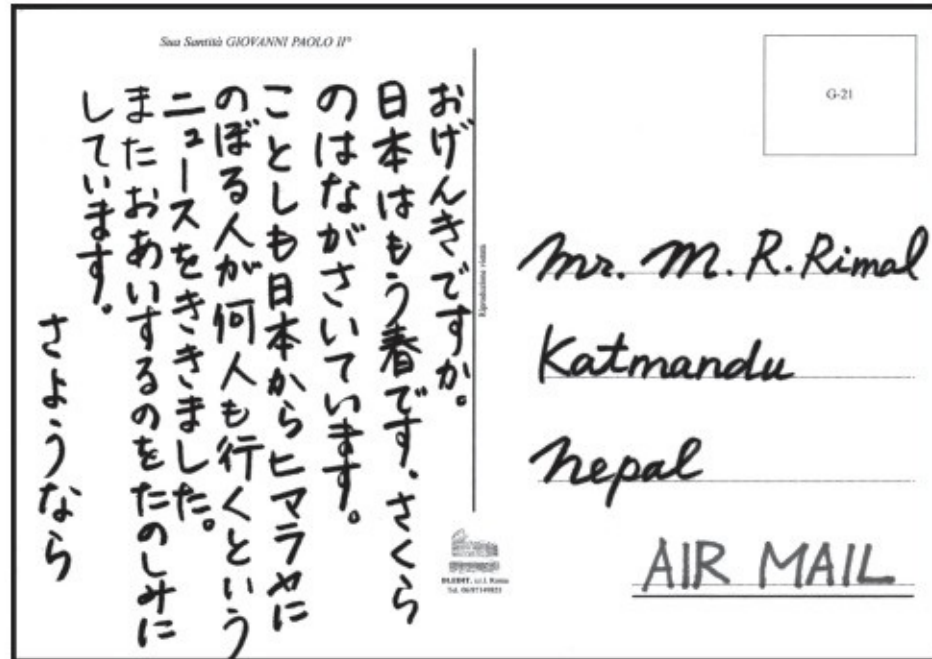 Sua Santità GIOVANNI PAOLO II°
おげんきですか。
日本はもう春です、さくら
のはながさいています。
ことしも日本からヒマラヤに
のぼる人が何人も行くという
ニュースをききました。
またおあいするのをたのしみに
しています。
さようなら
Riproduzione vietata
G-21
Mr. M. R. Rimal
Katmandu
Nepal
AIR MAIL
s.r.l. Roma